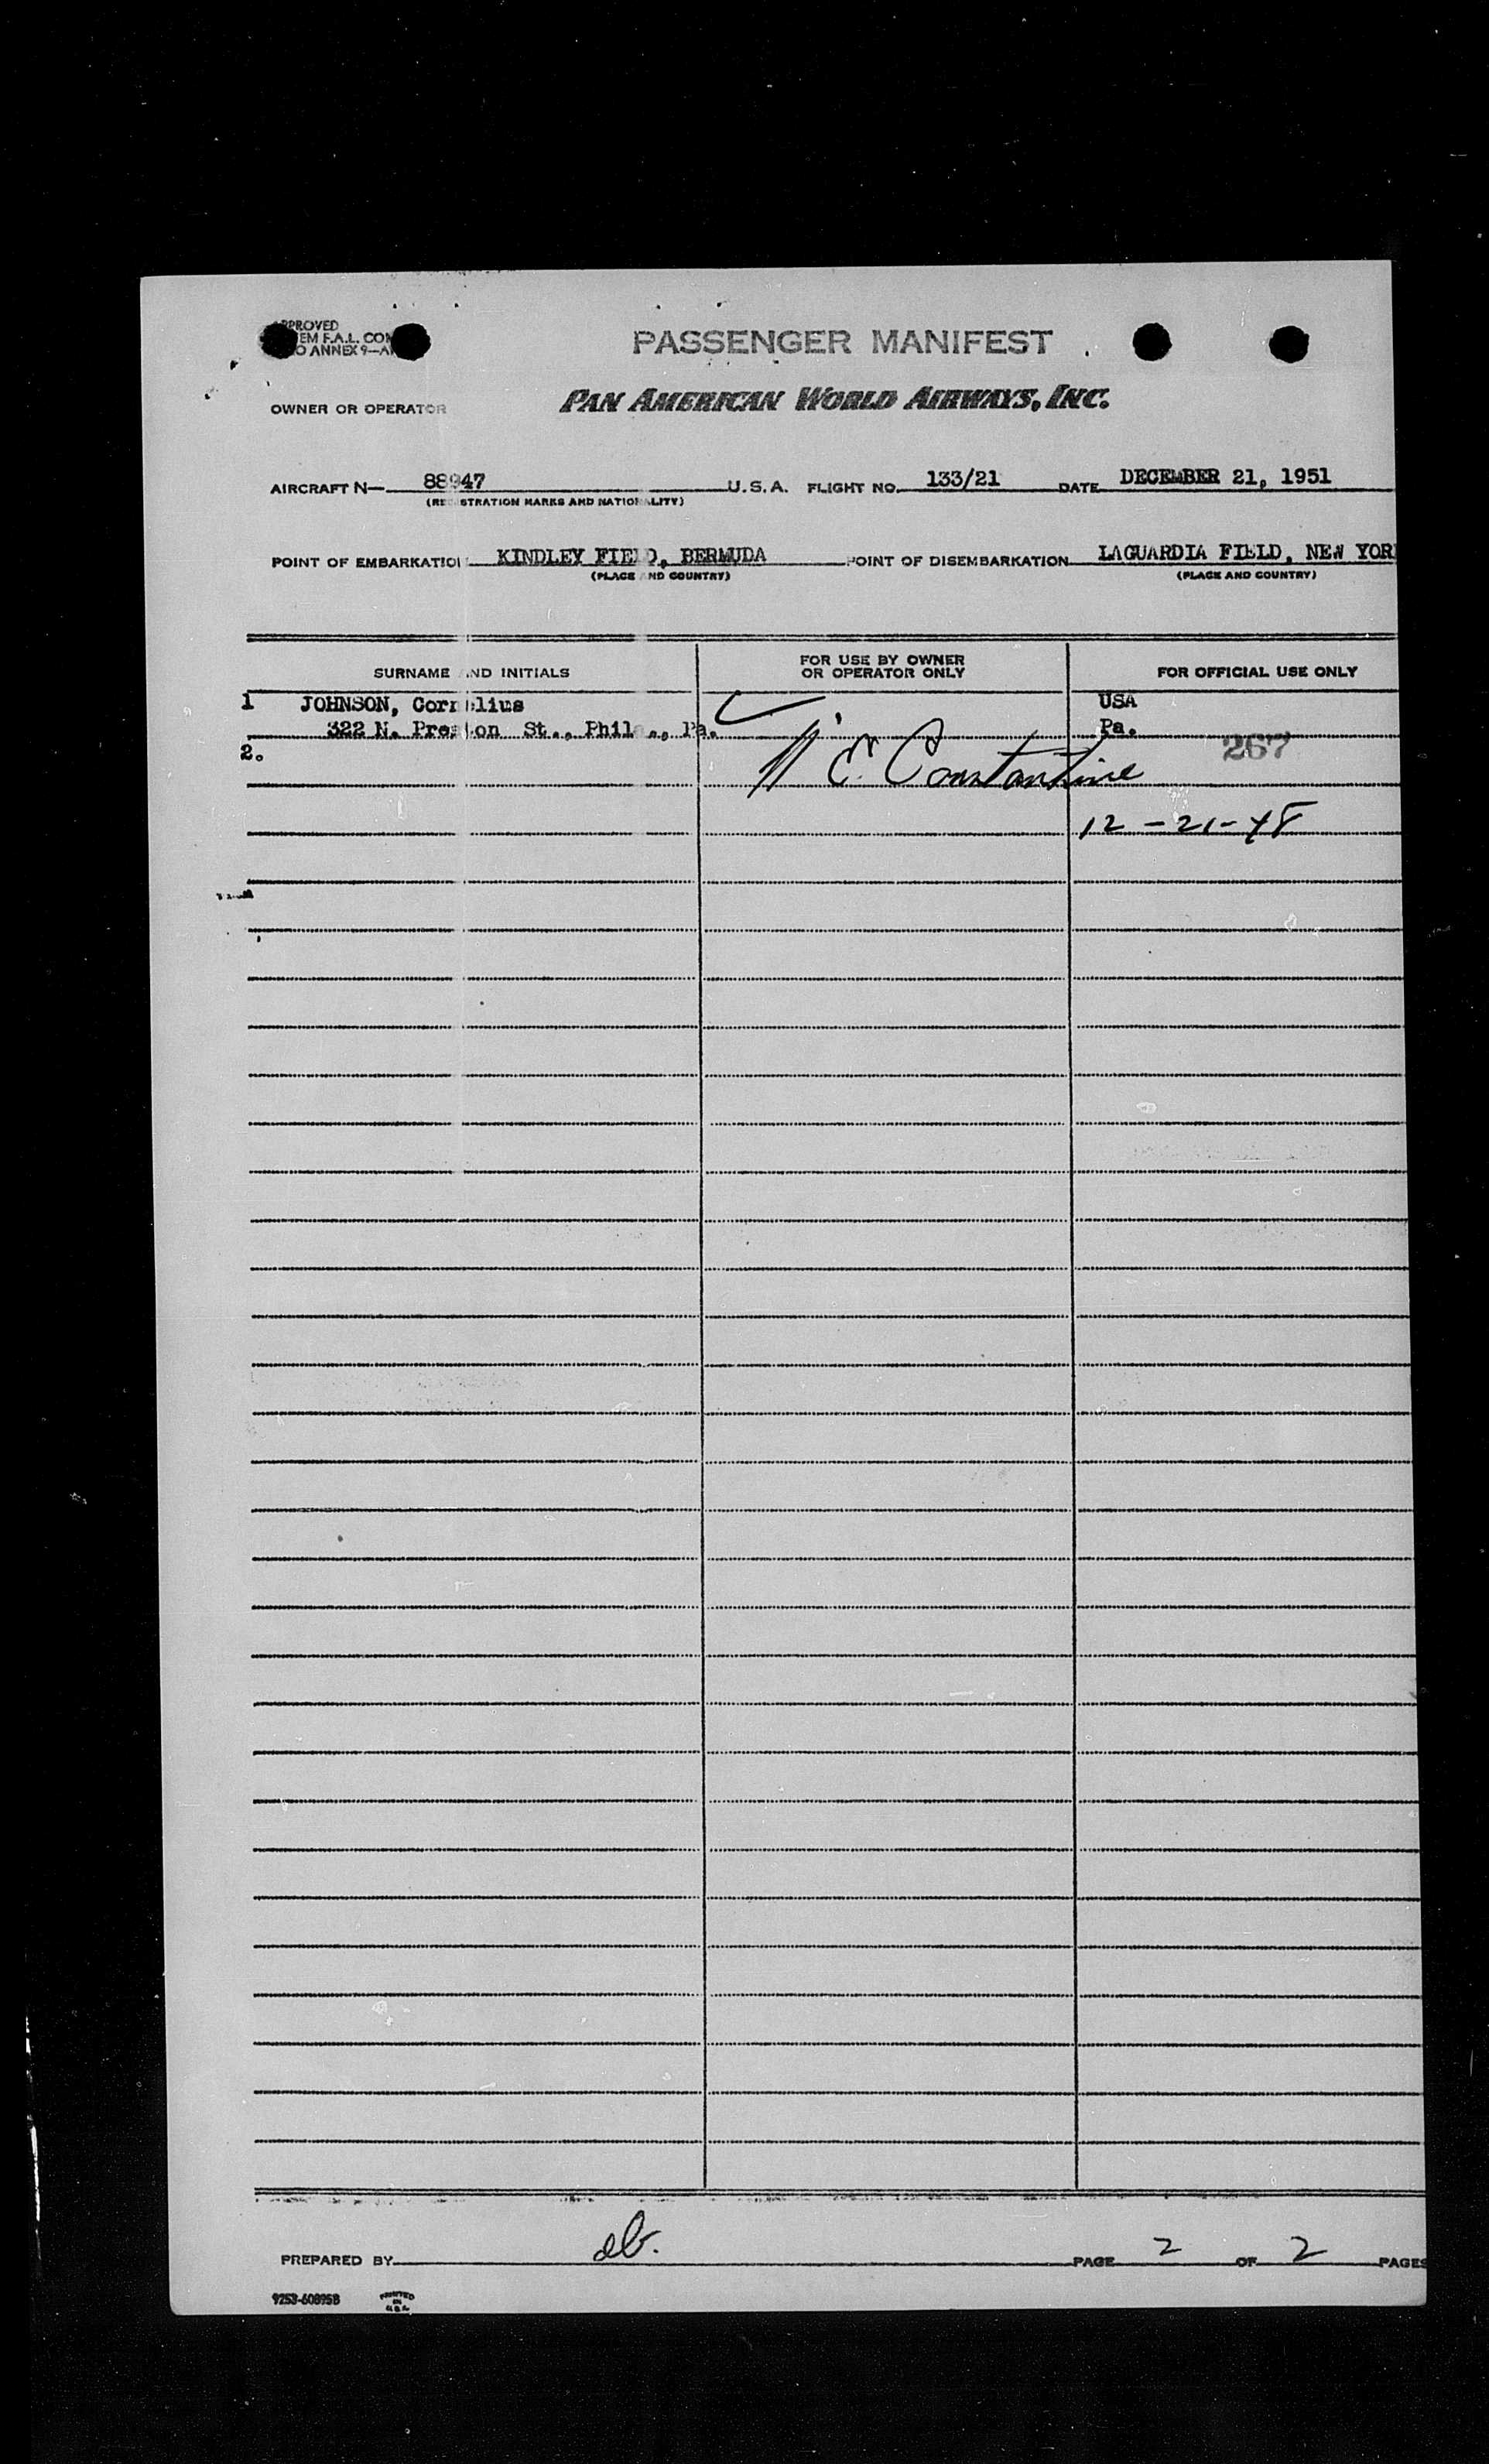 PROVED
EM F.A.L. CON
O ANNEX 9—A
PASSENGER MANIFEST
OWNER OR OPERATOR PAN AMERICAN WORLD AIRWAYS, INC.
AIRCRAFT N— 88947 U.S.A. FLIGHT NO. 133/21 DATE DECEMBER 21, 1951
(REGISTRATION MARKS AND NATIONALITY)
POINT OF EMBARKATION KINDLEY FIELD, BERMUDA POINT OF DISEMBARKATION LAGUARDIA FIELD, NEW YOR
(PLACE AND COUNTRY) (PLACE AND COUNTRY)
SURNAME AND INITIALS FOR USE BY OWNER OR OPERATOR ONLY FOR OFFICIAL USE ONLY
1 JOHNSON, Cornelius USA
322 N. Preston St., Phila., Pa. Pa.
2. E. Constantine 267
12-21-48
PREPARED BY db. PAGE 2 OF 2 PAGES
9253-60895B PRINTED IN U.S.A.